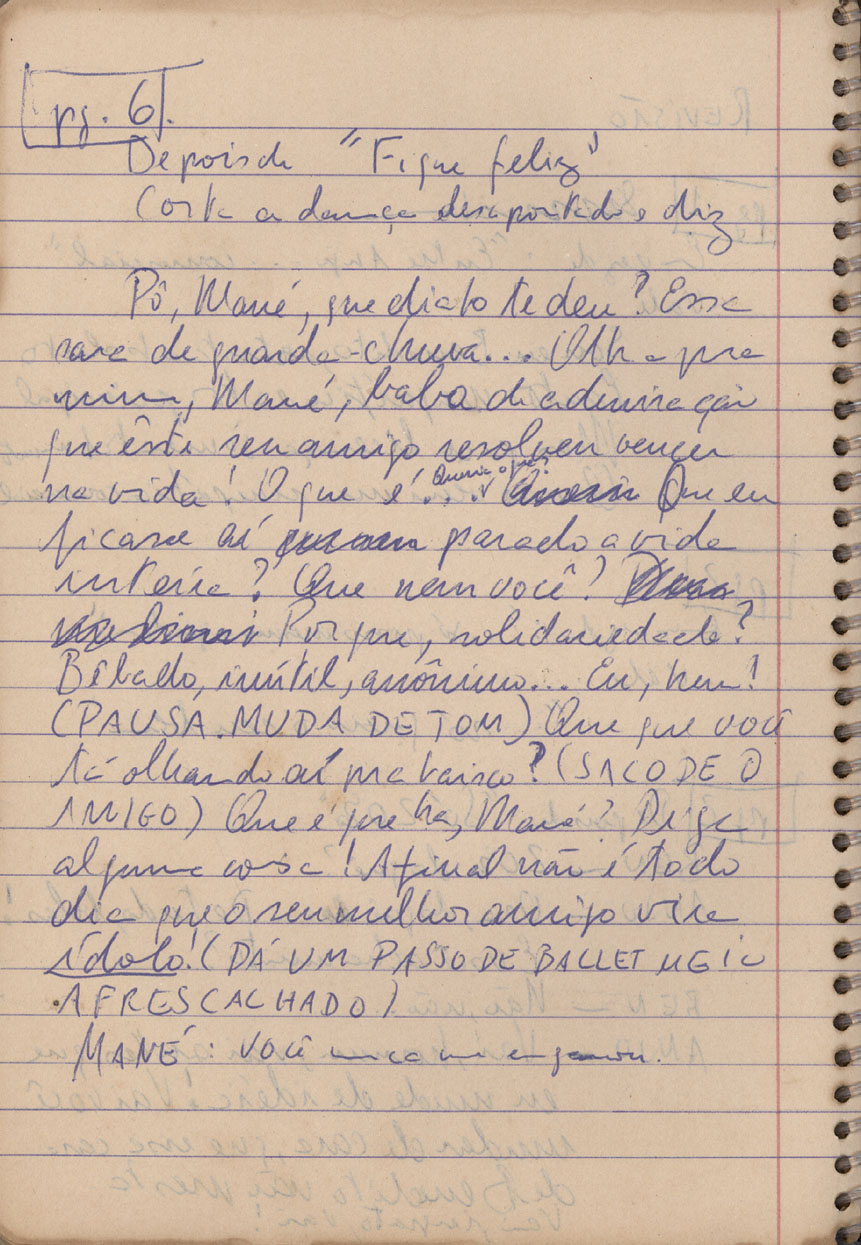 pg. 6.
Depois de "Fique feliz"
Corta a dança desapontado e diz
Pô, Mané, que diabo te deu? Essa
cara de guarda-chuva... Olha pra
mim, Mané, baba de admiração
que êste seu amigo resolveu vencer
na vida! O que é?... Queria o que? Que eu
ficasse aí parado a vida
inteira? Que nem você?
Por que, solidariedade?
Bêbado, inútil, anônimo... Eu, hem!
(PAUSA. MUDA DE TOM) Que que você
tá olhando aí pra baixo? (SACODE O
AMIGO) Que é que há, Mané? Diga
alguma coisa! Afinal não é todo
dia que o seu melhor amigo vira
ídolo! (DÁ UM PASSO DE BALLET MEIO
AFRESCALHADO)
MANÉ: Você nunca me enganou.